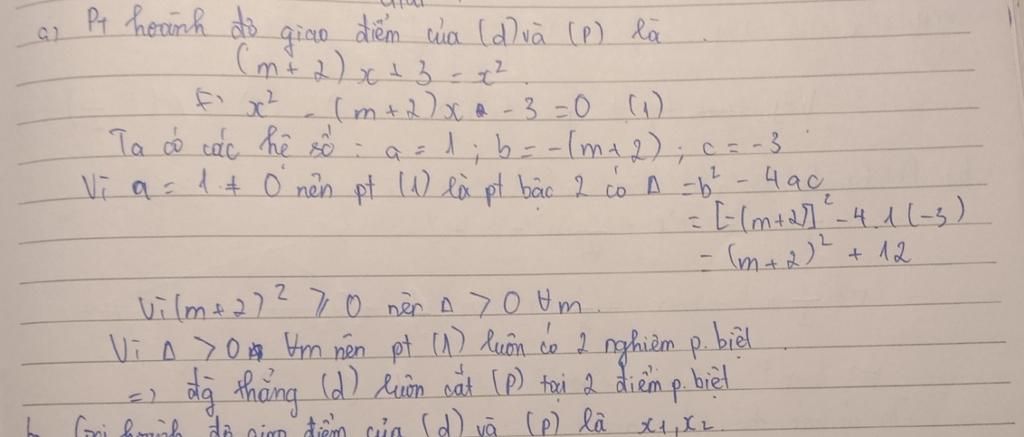 giải
a) Pt hoành độ giao điểm của (d) và (P) là
(m+2)x+3 = x²
x² - (m+2)x - 3 = 0 (1)
Ta có các hệ số : a = 1 ; b = -(m+2) ; c = -3
Vì a = 1 ≠ 0 nên pt (1) là pt bậc 2 có Δ = b² - 4ac
= [-(m+2)]² - 4.1(-3)
= (m+2)² + 12
Vì (m+2)² ⩾ 0 nên Δ > 0 ∀m.
Vì Δ > 0 ∀m nên pt (1) luôn có 2 nghiệm p.biệt
=> đg thẳng (d) luôn cắt (P) tại 2 điểm p.biệt
b, Gọi hoành độ giao điểm của (d) và (P) là x₁, x₂